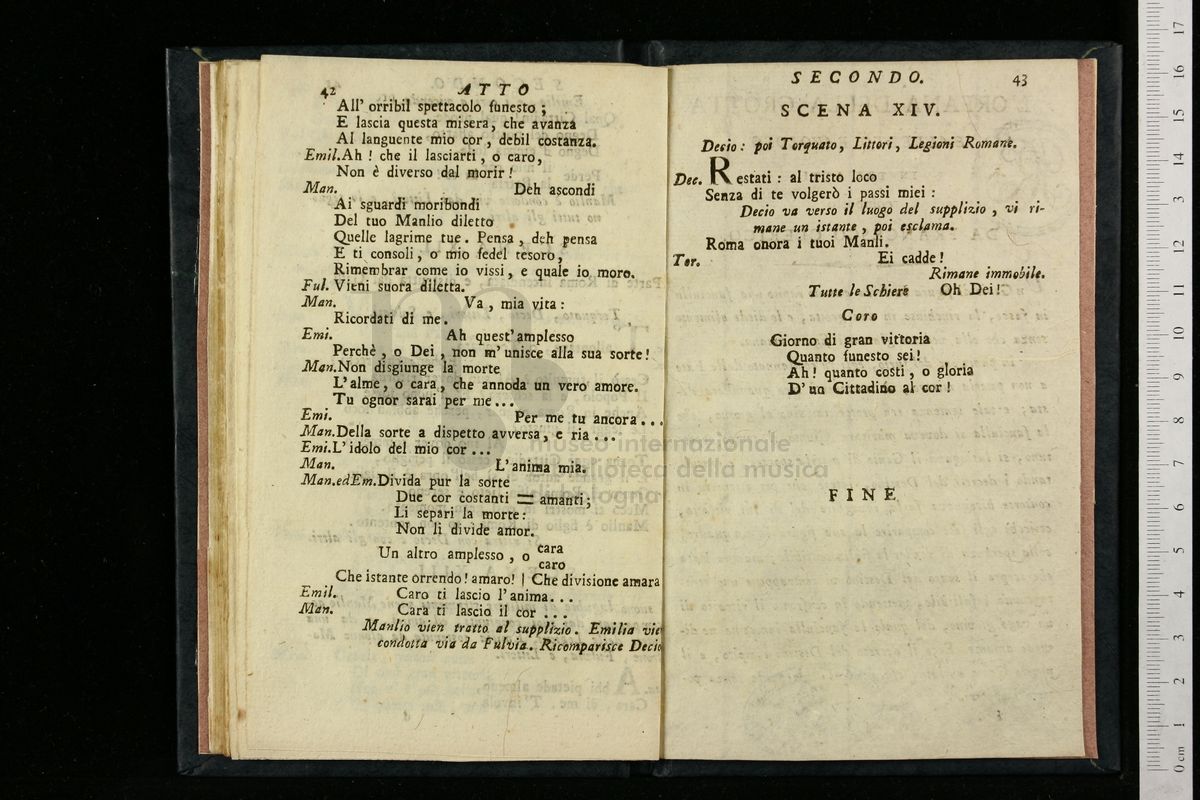 42 ATTO
All' orribil spettacolo funesto;
E lascia questa misera, che avanza
Al languente mio cor, debil costanza.
Emil. Ah! che il lasciarti, o caro,
Non è diverso dal morir!
Man. Deh ascondi
Ai sguardi moribondi
Del tuo Manlio diletto
Quelle lagrime tue. Pensa, deh pensa
E ti consoli, o mio fedel tesoro,
Rimembrar come io vissi, e quale io moro.
Ful. Vieni suora diletta.
Man. Va, mia vita:
Ricordati di me.
Emi. Ah quest' amplesso
Perchè, o Dei, non m' unisce alla sua sorte!
Man. Non disgiunge la morte
L' alme, o cara, che annoda un vero amore.
Tu ognor sarai per me...
Emi. Per me tu ancora...
Man. Della sorte a dispetto avversa, e ria...
Emi. L' idolo del mio cor...
Man. L' anima mia.
Man. ed Em. Divida pur la sorte
Due cor costanti = amanti;
Li separi la morte:
Non li divide amor.
Un altro amplesso, o cara
caro
Che istante orrendo! amaro! | Che divisione amara
Emil. Caro ti lascio l' anima...
Man. Cara ti lascio il cor...
Manlio vien tratto al supplizio. Emilia vie
condotta via da Fulvia. Ricomparisce Decio
SECONDO. 43
SCENA XIV.
Decio: poi Torquato, Littori, Legioni Romane.
Dec. Restati: al tristo loco
Senza di te volgerò i passi miei:
Decio va verso il luogo del supplizio, vi ri-
mane un istante, poi esclama.
Roma onora i tuoi Manli.
Tor. Ei cadde!
Rimane immobile.
Tutte le Schiere Oh Dei!
Coro
Giorno di gran vittoria
Quanto funesto sei!
Ah! quanto costi, o gloria
D' un Cittadino al cor!
FINE
museo internazionale
biblioteca della musica
bologna
0 cm 1 2 3 4 5 6 7 8 9 10 11 12 13 14 15 16 17